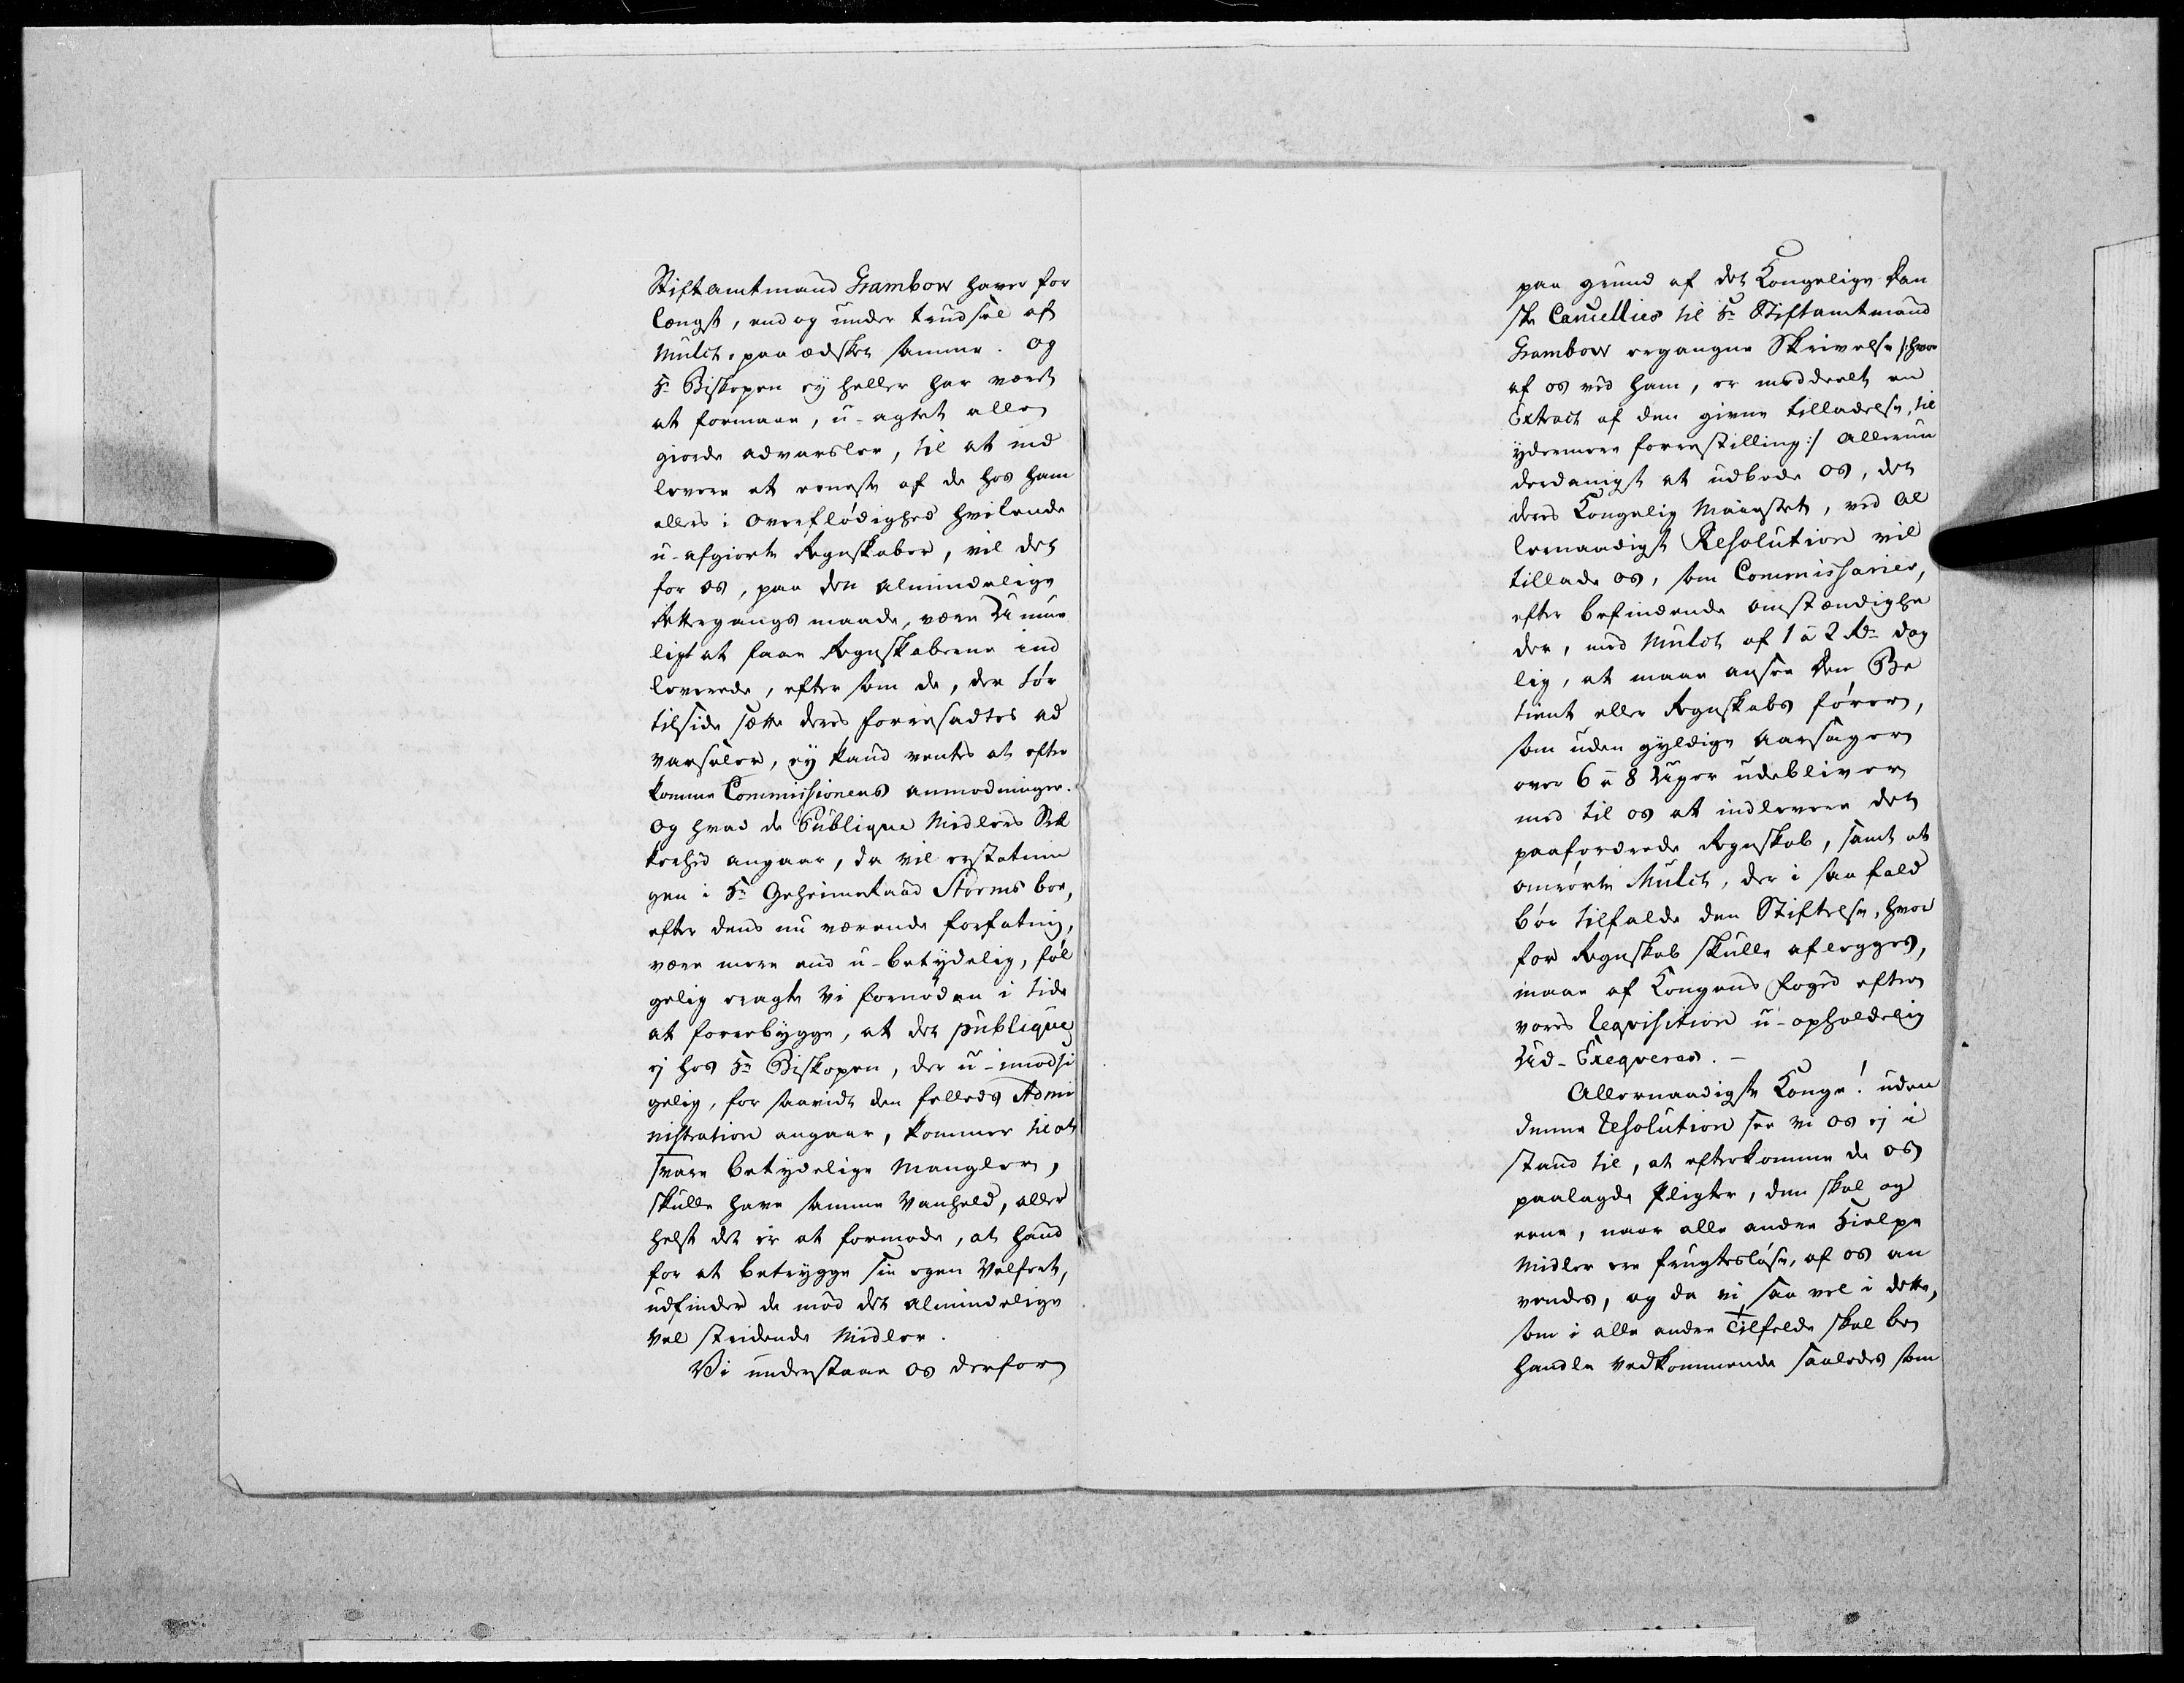 Stiftamtmand Grambow haver for
længst, end og under trudsel af
Mulct, paa ædsket samme. og
Hr. Biskopen ey heller har været
at formaae, u-agtet alle
giorde advarsler, til at ind
levere et eeneste af de hos ham
ellers i Overflødighed hvilende
u-afgiorte Regnskaber, vil det
for os, paa den almindelige
Rettergangs maade, være U mue
ligt at faae Regnskaberne ind
leverede, efter som de, der tør
tilside sætte deres foresadtes ad
varseler, ey kand ventes at efter
komme Commissionens anmodninger.
Og hvad de Publique Midlers Sik
kerhed angaaer, da vil restatnin
gen i Hr. Geheimeraad Storms boe,
efter dens nu værende forfatning,
være mere end u-betydelig, føl
gelig eragte Vi fornøden i tide
at forrebygge, at det publique
ej hos Hr. Biskopen, der u-imodsi
gelig, for saavidt den felleds Admi
nistration angaaer, kommer til at
svare betydelige Mangler,
skulle have samme Vanheld, aller
helst det er at formode, at hand
for at betrygge sin egen Velfert,
udfinder de mod det almindelige
Vel stridende Midler.
Vi understaae os derfor
paa grund af det Kongelige Dan
ske Cancellies til Hr. Stiftamtmand
Grambow ergangne Skrivelse /: hvor
af os ved ham, er meddeelt en
Extract af den givne tilladelse, til
ydermere forrestilling :/ Allerun
derdanigst at udbede os, det
deres Kongelig Mäiestet, ved Al
lernaadigst Resolution vil
tillade os, som Commissarier,
efter befindende omstændighe
der, med Mulct af 1 à 2 Rdr. dag
lig, at maae ansee den Be
tient eller Regnskabs fører,
som uden gyldige Aarsager
over 6 à 8 Uger udebliver
med til os at indlevere det
paafordrede Regnskab, samt at
omrørte Mulct, der i saa fald
bør tilfalde den Stiftelse, hvor
for Regnskab skulle aflegges,
maae af Kongens foged efter
vores Reqvisition u-opholdelig
Ud-Exeqveres. –
Allernaadigste Konge! uden
denne Resolution see vi os ej i
stand til, at efterkomme de os
paalagde Pligter, den skal og
eene, naar alle andre Hielpe
Midler ere frugtesløse, af os an
vendes, og da vi saa vel i dette,
som i alle andre Tilfelde skal be
handle Vedkommende saaledes som